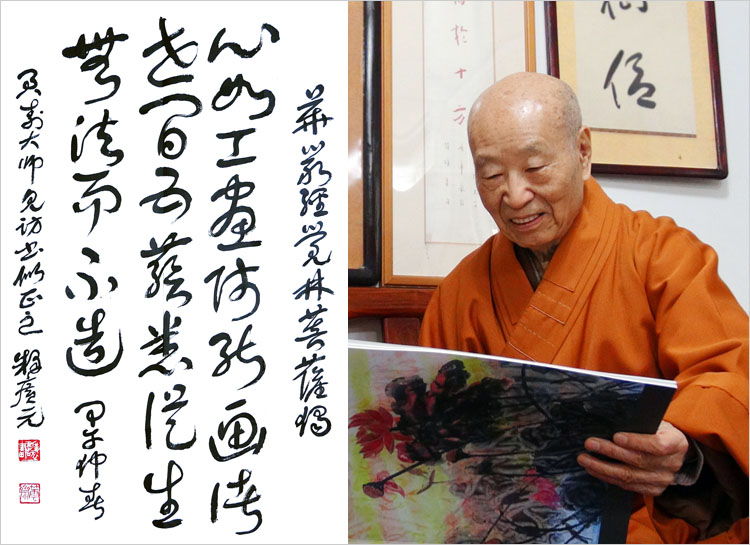 華嚴經覺林菩薩偈
心如工畫師能画諸
世間五蘊悉從生
無法而不造 甲午仲春
大師見訪書似正之 釋廣元
於十方
信